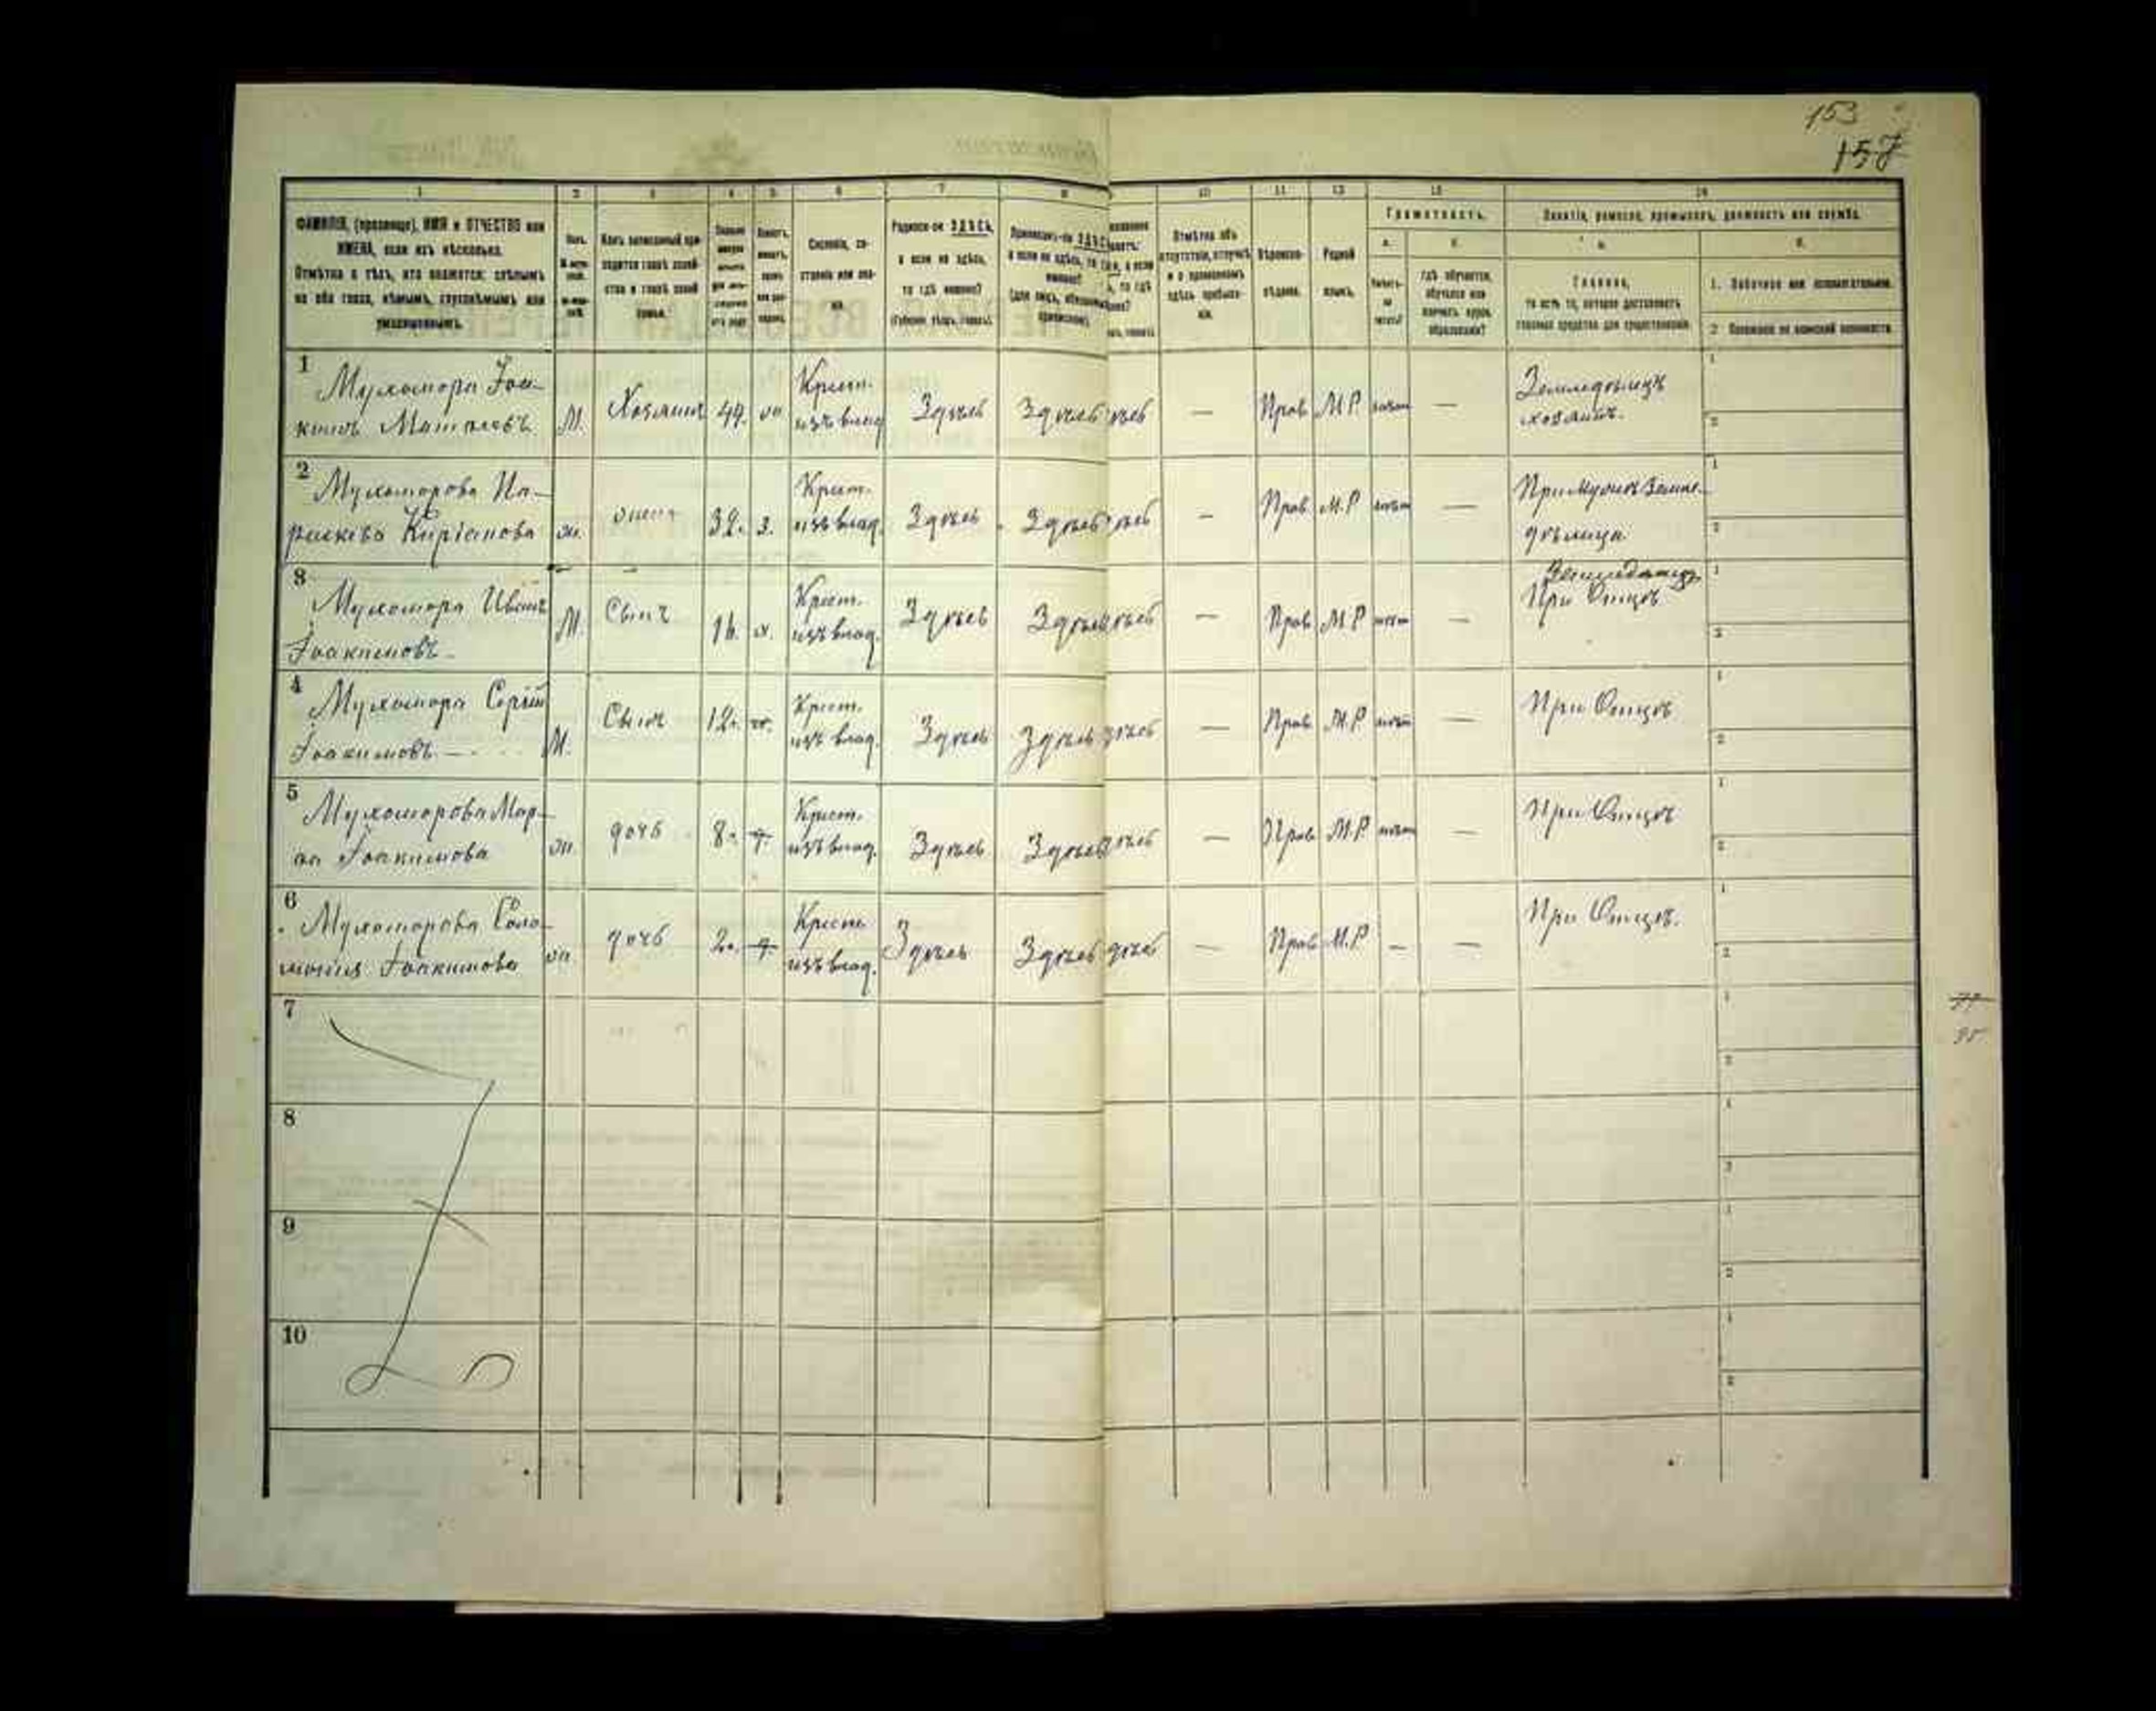 153
157
1 2 3 4 5 6 7 8 10 11 12 13 14
ФАМИЛІЯ, (прозвище), ИМЯ и ОТЧЕСТВО или
ИМЕНА, если ихъ нѣсколько.
Отмѣтка о тѣхъ, кто окажется: слѣпымъ
на оба глаза, нѣмымъ, глухонѣмымъ или
умалишеннымъ.
Полъ.
Какъ записанный при-
ходится главѣ хозяй-
ства и главѣ своей
семьи.
Сословіе, со-
стояніе или зва-
ніе.
Родился-ли ЗДѢСЬ,
а если не здѣсь,
то гдѣ именно?
(Губернія, уѣздъ, городъ).
Приписанъ-ли ЗДѢСЬ,
а если не здѣсь, то гдѣ
именно?
(для лицъ, обязанныхъ
припиской).
Отмѣтка объ
отсутствіи, отлучкѣ
и о временномъ
здѣсь пребыва-
ніи.
Вѣроиспо-
вѣданіе.
Родной
языкъ.
Грамотность.
а. б.
Умѣетъ-
ли
читать?
гдѣ обучается,
обучался или
кончилъ курсъ
образованія?
Занятіе, ремесло, промыселъ, должность или служба.
а. б.
Главное,
то есть то, которое доставляетъ
главныя средства для существованія.
1. Побочное или вспомогательное.
2. Положеніе по воинской повинности.
1 Мухомора Іоа-
кимъ Матвѣевъ М. Хозяинъ 49. ж. Крест. изъ влад. Здѣсь Здѣсь — Прав М.Р. нѣтъ — Земледѣлецъ
хозяинъ.
2 Мухоморова Па-
раскева Кирiанова ж. жена 3. Крест. изъ влад. Здѣсь Здѣсь — Прав М.Р нѣтъ — При мужѣ Земле-
дѣлица
3 Мухомора Иванъ
Іоакимовъ М Сынъ 16. х. Крест. изъ влад. Здѣсь Здѣсь — Прав М.Р нѣтъ — Земледѣлецъ
При Отцѣ
4 Мухомора Сергій
Іоакимовъ — М. Сынъ 12. Крест. изъ влад. Здѣсь Здѣсь — Прав М.Р нѣтъ — При Отцѣ
5 Мухоморова Мар-
іа Іоакимова ж. дочь 8. Крест. изъ влад. Здѣсь Здѣсь — Прав М.Р нѣтъ — При Отцѣ
6 Мухоморова Соло-
монія Іоакимова ж. дочь 2. Крест изъ влад. Здѣсь Здѣсь — Прав М.Р — — При Отцѣ.
7
8
9
10